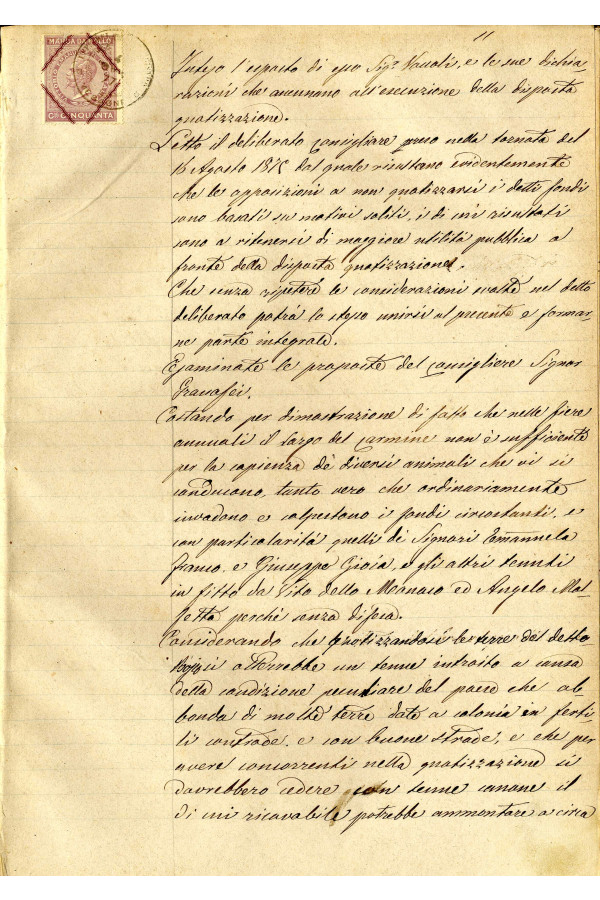 MARCA DA BOLLO
Cmi CINQUANTA
11
Inteso l'esposto di esso Sigr Vavoli, e le sue dichia-
razioni che accennano all'esecuzione della disposta
quotizzazione.
Letto il deliberato Consigliare preso nella tornata del
16 Agosto 1875 dal quale risultano evidentemente
che le opposizioni a non quotizzarsi i detti fondi
sono basati su motivi solidi, i di cui risultati
sono a ritenersi di maggiore utilità pubblica a
fronte della disposta quotizzazione.
Che senza ripetere le considerazioni svolte nel detto
deliberato potrà lo stesso unirsi al presente e formar-
ne parte integrale.
Esaminate le proposte del Consigliere Signor
Granafei.
Costando per dimostrazione di fatto che nelle fiere
annuali il largo del Carmine non è sufficiente
per la capienza de' diversi animali che vi si
conducono, tanto vero che ordinariamente
invadono e calpestono i fondi circostanti, e
con particolarità quelli di Signori Emmanuela
Franco, e Giuseppe Gioia, e gli altri tenuti
in fitto da Vito dello Monaco ed Angelo Mal-
fetta perché senza difesa.
Considerando che quotizzandosi le terre del detto
si otterrebbe un tenue introito a causa
della condizione peculiare del paese che ab-
bonda di molte terre date a colonia in ferti-
li contrade, e con buone strade, e che per
avere concorrenti nella quotizzazione si
dovrebbero cedere con tenue canone il
di cui ricavabile potrebbe ammontare a circa